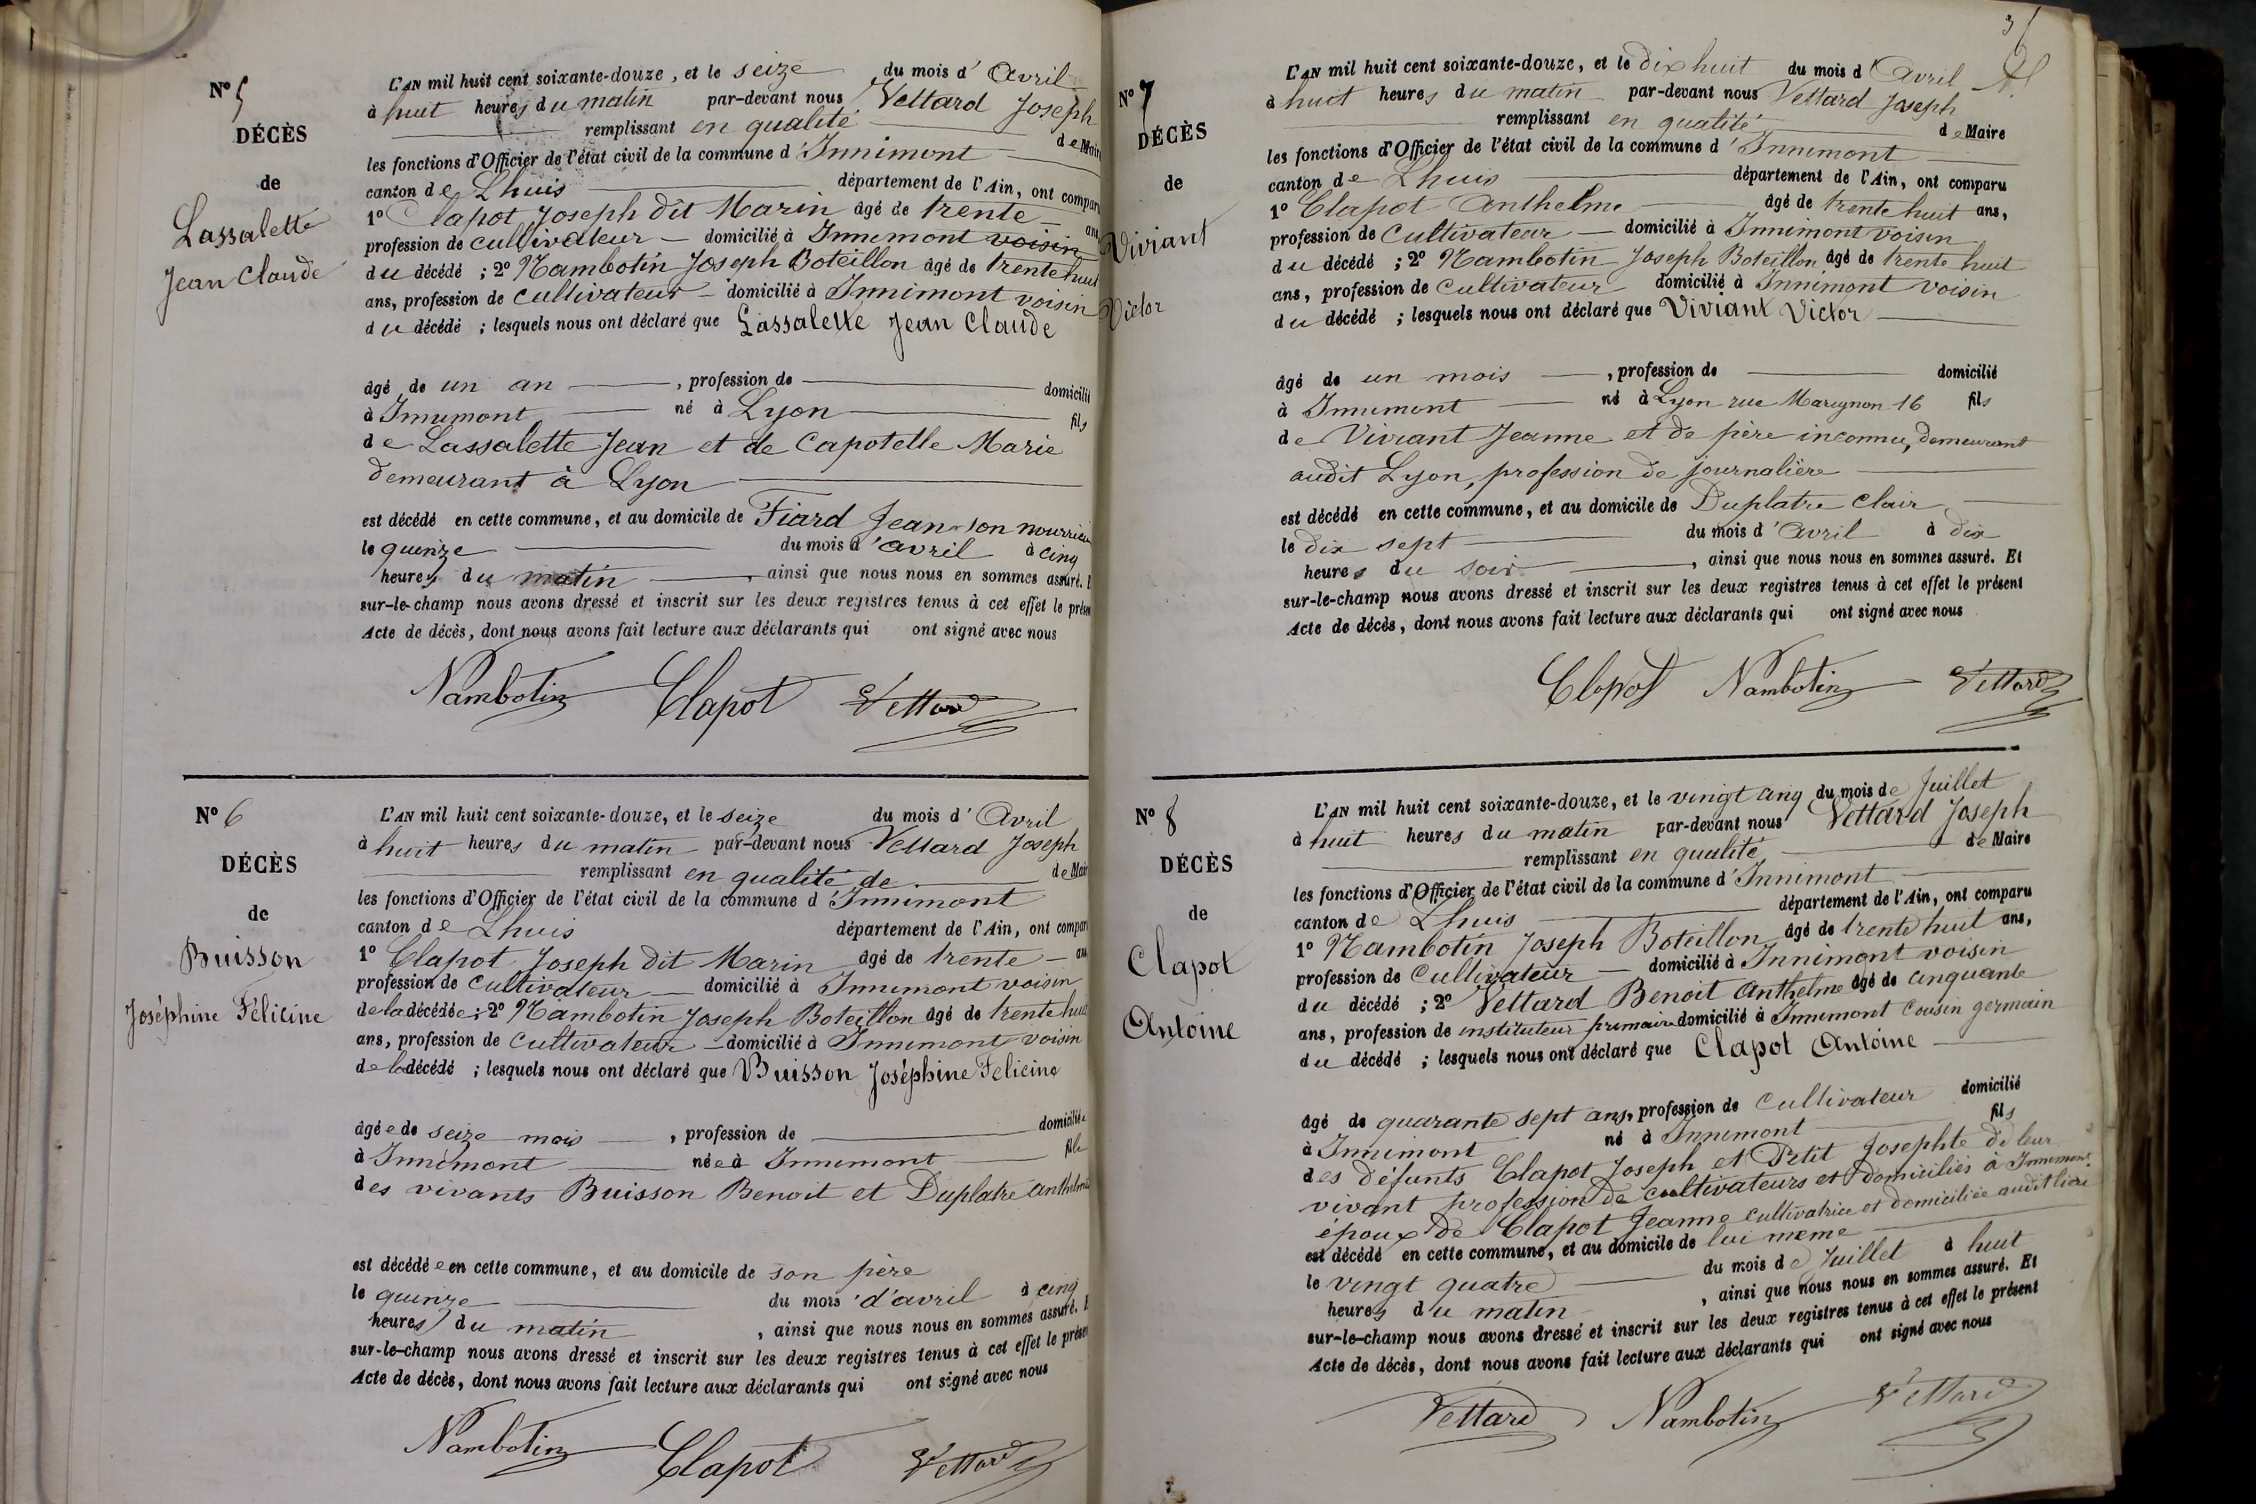 N° 5
DÉCÈS
de
Lassalette
Jean Claude
L'AN mil huit cent soixante-douze, et le seize du mois d'Avril
à huit heures du matin par-devant nous Vettard Joseph
remplissant en qualité de Maire
les fonctions d'Officier de l'état civil de la commune d'Innimont
canton de Lhuis département de l'Ain, ont comparu
1° Clapot Joseph dit Marin âgé de trente ans
profession de cultivateur domicilié à Innimont voisin
du décédé ; 2° Nambotin Joseph Boteillon âgé de trente huit
ans, profession de cultivateur domicilié à Innimont voisin
du décédé ; lesquels nous ont déclaré que Lassalette Jean Claude
âgé de un an , profession de domicilié
à Innimont né à Lyon fils
de Lassalette Jean et de Capotelle Marie
demeurant à Lyon
est décédé en cette commune, et au domicile de Fiard Jean son nourricier
le quinze du mois d'avril à cinq
heures du matin , ainsi que nous nous en sommes assuré. E
sur-le-champ nous avons dressé et inscrit sur les deux registres tenus à cet effet le présen
Acte de décès, dont nous avons fait lecture aux déclarants qui ont signé avec nous
Nambotin Clapot Vettard
N° 6
DÉCÈS
de
Buisson
Joséphine Félicine
L'AN mil huit cent soixante-douze, et le seize du mois d'Avril
à huit heures du matin par-devant nous Vettard Joseph
remplissant en qualité de de Mair
les fonctions d'Officier de l'état civil de la commune d'Innimont
canton de Lhuis département de l'Ain, ont compar
1° Clapot Joseph dit Marin âgé de trente an
profession de cultivateur domicilié à Innimont voisin
de la décédée ; 2° Nambotin Joseph Boteillon âgé de trente huit
ans, profession de cultivateur domicilié à Innimont voisin
de la décédé ; lesquels nous ont déclaré que Buisson Joséphine Felicine
âgée de seize mois , profession de domiciliée
à Innimont née à Innimont fille
des vivants Buisson Benoit et Duplatre Anthelmie
est décédée en cette commune, et au domicile de son père
le quinze du mois d'avril à cinq
heures du matin , ainsi que nous nous en sommes assuré. E
sur-le-champ nous avons dressé et inscrit sur les deux registres tenus à cet effet le présen
Acte de décès, dont nous avons fait lecture aux déclarants qui ont signé avec nous
Nambotin Clapot Vettard
N° 7
DÉCÈS
de
Viviant
Victor
L'AN mil huit cent soixante-douze, et le dix huit du mois d'Avril
à huit heures du matin par-devant nous Vettard Joseph
remplissant en qualité de Maire
les fonctions d'Officier de l'état civil de la commune d'Innimont
canton de Lhuis département de l'Ain, ont comparu
1° Clapot Anthelme âgé de trente huit ans,
profession de cultivateur domicilié à Innimont voisin
du décédé ; 2° Nambotin Joseph Boteillon âgé de trente huit
ans, profession de cultivateur domicilié à Innimont voisin
du décédé ; lesquels nous ont déclaré que Viviant Victor
âgé de un mois , profession de domicilié
à Innimont né à Lyon rue Marignon 16 fils
de Viviant Jeanne et de père inconnu, demeurant
audit Lyon, profession de journalière
est décédé en cette commune, et au domicile de Duplatre Clair
le dix sept du mois d'Avril à dix
heures du soir , ainsi que nous nous en sommes assuré. Et
sur-le-champ nous avons dressé et inscrit sur les deux registres tenus à cet effet le présent
Acte de décès, dont nous avons fait lecture aux déclarants qui ont signé avec nous
Clapot Nambotin Vettard
N° 8
DÉCÈS
de
Clapot
Antoine
L'AN mil huit cent soixante-douze, et le vingt cinq du mois de Juillet
à huit heures du matin par-devant nous Vettard Joseph
remplissant en qualité de Maire
les fonctions d'Officier de l'état civil de la commune d'Innimont
canton de Lhuis département de l'Ain, ont comparu
1° Nambotin Joseph Boteillon âgé de trente huit ans,
profession de cultivateur domicilié à Innimont voisin
du décédé ; 2° Vettard Benoit Anthelme âgé de cinquante
ans, profession de instituteur primaire domicilié à Innimont cousin germain
du décédé ; lesquels nous ont déclaré que Clapot Antoine
âgé de quarante sept ans, profession de cultivateur domicilié
à Innimont né à Innimont fils
des défunts Clapot Joseph et Petit Josephte de leur
vivant profession de cultivateurs et domiciliés à Innimont
époux de Clapot Jeanne cultivatrice et domiciliée audit lieu
est décédé en cette commune, et au domicile de lui meme
le vingt quatre du mois de Juillet à huit
heures du matin , ainsi que nous nous en sommes assuré. Et
sur-le-champ nous avons dressé et inscrit sur les deux registres tenus à cet effet le présent
Acte de décès, dont nous avons fait lecture aux déclarants qui ont signé avec nous
Vettard Nambotin Vettard